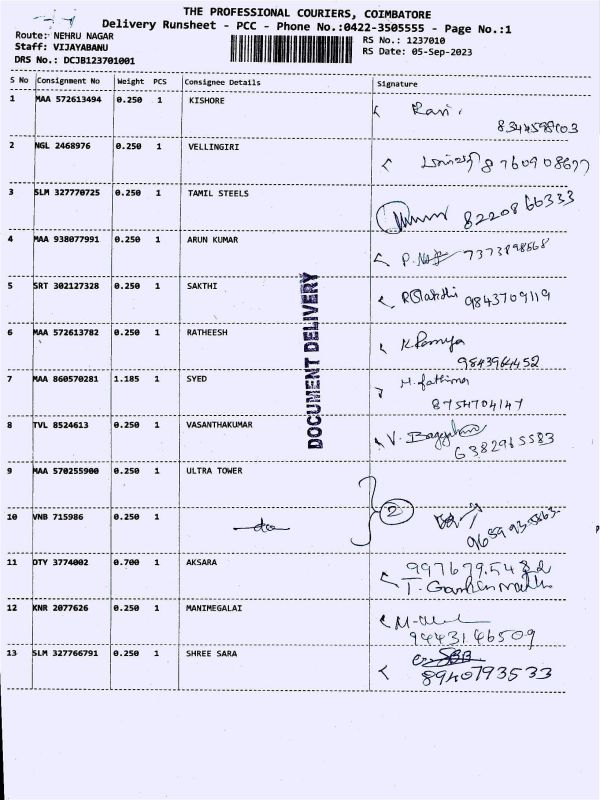 THE PROFESSIONAL COURIERS, COIMBATORE
Delivery Runsheet - PCC - Phone No.:0422-3505555 - Page No.:1
Route: NEHRU NAGAR
RS No.: 1237010
Staff: VIJAYABANU
RS Date: 05-Sep-2023
DRS No.: DCJB123701001
S No Consignment No Weight PCS Consignee Details Signature
1 MAA 572613494 0.250 1 KISHORE Ravi
2 NGL 2468976 0.250 1 VELLINGIRI
3 SLM 327770725 0.250 1 TAMIL STEELS 8220866333
4 MAA 938077991 0.250 1 ARUN KUMAR 7373898568
5 SRT 302127328 0.250 1 SAKTHI 9843709119
6 MAA 572613782 0.250 1 RATHEESH K Ramya
9843964452
7 MAA 860570281 1.185 1 SYED M. fathima
8754704147
8 TVL 8524613 0.250 1 VASANTHAKUMAR V.
6382965583
9 MAA 570255900 0.250 1 ULTRA TOWER
2
10 VNB 715986 0.250 1 do
11 DTY 3774002 0.700 1 AKSARA
12 KNR 2077626 0.250 1 MANIMEGALAI
9443146509
13 SLM 327766791 0.250 1 SHREE SARA
8940793533
DOCUMENT DELIVERY